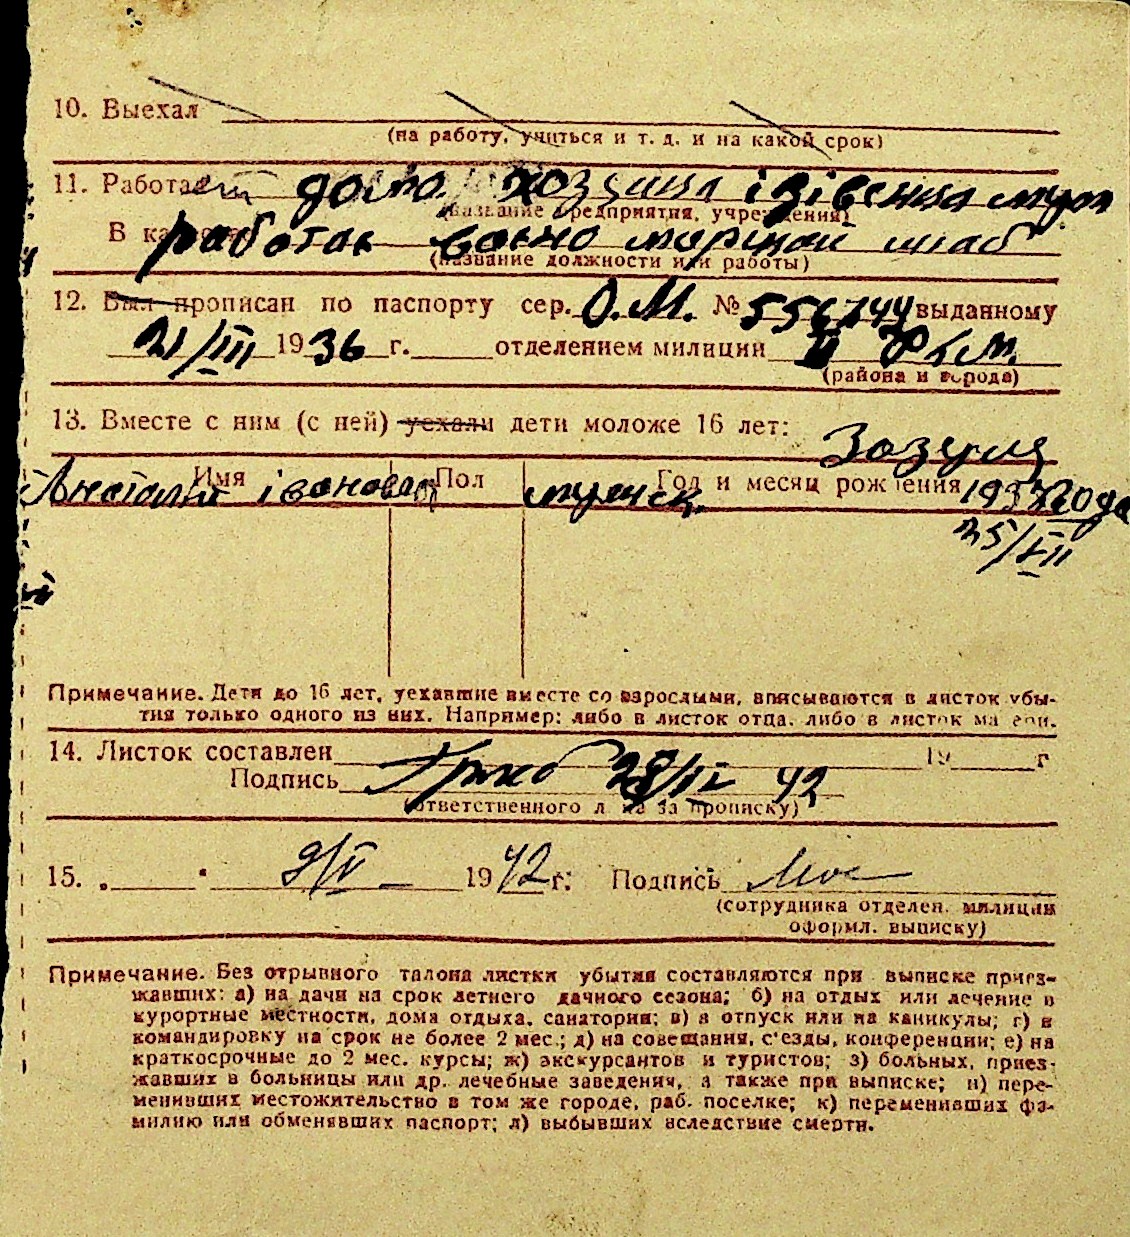 10. Выехал
(на работу, учиться и т. д. и на какой срок)
11. Работает дома. хозяика іздівенца муж
(название предприятия, учреждения)
В работає военно морской штаб
(название должности или работы)
12. Был прописан по паспорту сер. О.М. № 556744 выданному
21/III 1936 г. отделением милиции
(района и города)
13. Вместе с ним (с ней) уехали дети моложе 16 лет: Зозуля
Имя Пол Год и месяц рождения
Анатолий Іванович мужск. 193 года
25/VII
Примечание. Дети до 16 лет, уехавшие вместе со взрослыми, вписываются в листок убы-
тия только одного из них. Например: либо в листок отца, либо в листок матери.
14. Листок составлен 19 г
Подпись 28/IV 42
(ответственного лица за прописку)
15. „ “ 9/V 1942 г. Подпись
(сотрудника отделен. милиции
оформл. выписку)
Примечание. Без отрывного талона листки убытия составляются при выписке приез-
жавших: а) на дачи на срок летнего дачного сезона; б) на отдых или лечение в
курортные местности, дома отдыха, санатории; в) в отпуск или на каникулы; г) в
командировку на срок не более 2 мес.; д) на совещания, с'езды, конференции; е) на
краткосрочные до 2 мес. курсы; ж) экскурсантов и туристов; з) больных, приез-
жавших в больницы или др. лечебные заведения, а также при выписке; и) пере-
менивших местожительство в том же городе, раб. поселке; к) переменивших фа-
милию или обменявших паспорт; л) выбывших вследствие смерти.